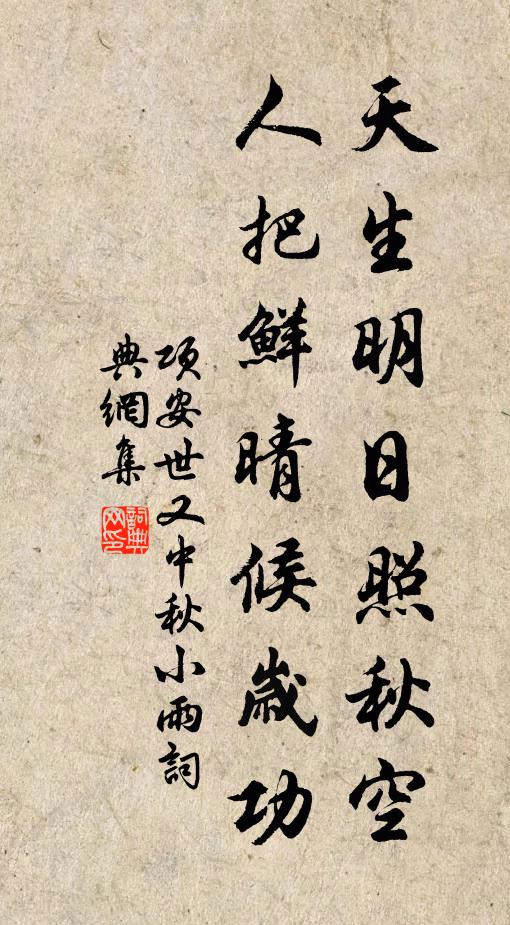 天生明日照秋空
人把鮮晴候歲功
項安世又中秋小雨詞
典網集
詞典網印